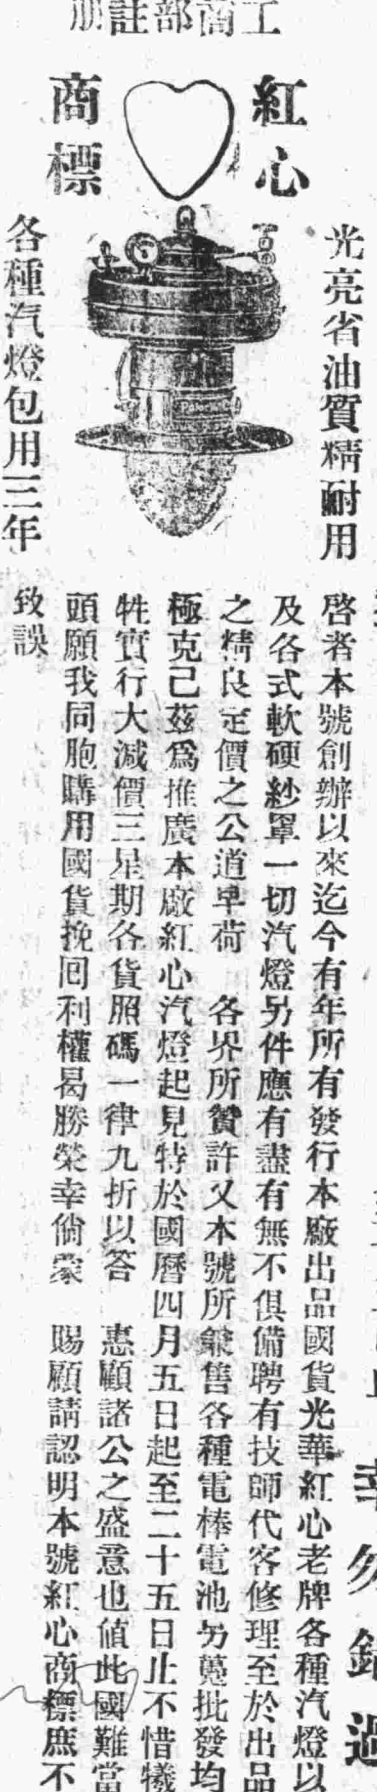 工商部註册
紅心
商標
光亮省油質精耐用
各種汽燈包用三年
啓者本號創辦以來迄今有年所有發行本廠出品國貨光華紅心老牌各種汽燈以
及各式軟硬紗罩一切汽燈另件應有盡有無不俱備聘有技師代客修理至於出品
之精良定價之公道早荷　各界所贊許又本號所兼售各種電棒電池另躉批發均
極克己茲爲推廣本廠紅心汽燈起見特於國曆四月五日起至二十五日止不惜犧
牲實行大減價三星期各貨照碼一律九折以答　惠顧諸公之盛意也値此國難當
頭願我同胞購用國貨挽回利權曷勝榮幸倘蒙　賜顧請認明本號紅心商標庶不
致誤